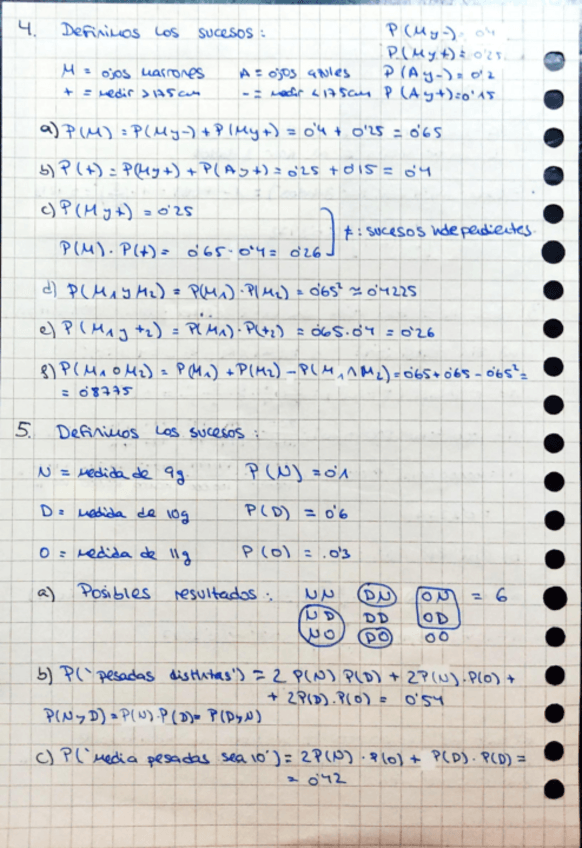 4. Definimos los sucesos: P(My-) = 0'4
P(My+) = 0'25
M = ojos marrones A = ojos azules P(Ay-) = 0'2
+ = medir > 175cm - = medir < 175cm P(Ay+) = 0'15
a) P(M) = P(My-) + P(My+) = 0'4 + 0'25 = 0'65
b) P(+) = P(My+) + P(Ay+) = 0'25 + 0'15 = 0'4
c) P(My+) = 0'25
≠ : sucesos independientes.
P(M) · P(+) = 0'65 · 0'4 = 0'26
d) P(M₁ y M₂) = P(M₁) · P(M₂) = 0'65² ≈ 0'4225
e) P(M₁ y +₂) = P(M₁) · P(+₂) = 0'65 · 0'4 = 0'26
f) P(M₁ o M₂) = P(M₁) + P(M₂) - P(M₁ ∧ M₂) = 0'65 + 0'65 - 0'65² =
= 0'8775
5. Definimos los sucesos:
N = medida de 9g P(N) = 0'1
D = medida de 10g P(D) = 0'6
O = medida de 11g P(O) = 0'3
a) Posibles resultados: NN DN ON = 6
ND DD OD
NO DO OO
b) P('pesadas distintas') = 2 P(N) P(D) + 2P(N).P(O) +
+ 2P(D).P(O) = 0'54
P(NyD) = P(N).P(D) = P(DyN)
c) P('Media pesadas sea 10') = 2P(N) · P(O) + P(D). P(D) =
= 0'42